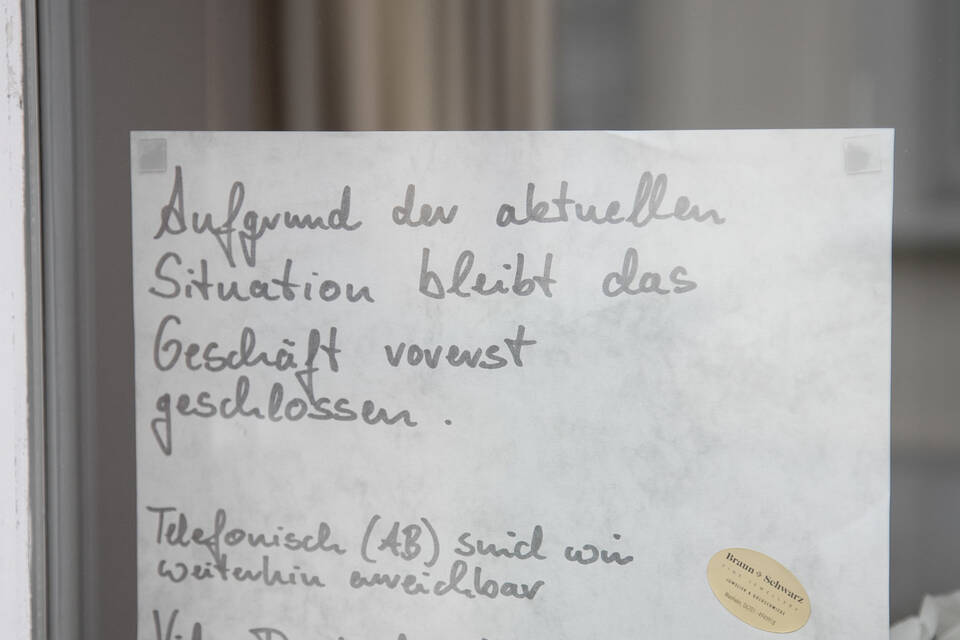 Aufgrund der aktuellen
Situation bleibt das
Geschäft vorerst
geschlossen.
Telefonisch (AB) sind wir
weiterhin erreichbar
Braun & Schwarz
FINE JEWELLERY
JUWELIER & GOLDSCHMIEDE